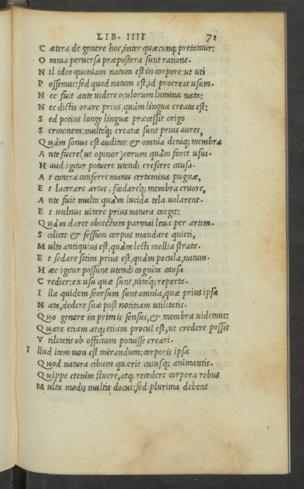 LIB. IIII 71
Cætera de genere hoc, inter quæcunq; pretantur:
Omnia peruersa præpostera sunt ratione.
Nil ideo quoniam natum est in corpore: ut uti
Possemus: sed quod natum est, id procreat usum.
Nec fuit ante uidere oculorum lumina nata:
Nec dictis orare prius, quàm lingua creata est:
Sed potius longe linguæ præcessit origo
Sermonem: multoq; creatæ sunt prius aures,
Quàm sonus est auditus: & omnia deniq; membra
Ante fuere (ut opinor) eorum quàm foret usus.
Haud igitur potuere utendi crescere causa.
At contra conferre manu certamina pugnæ,
Et lacerare artus. fœdareq; membra cruore,
Ante fuit multo: quàm lucida tela uolarent.
Et uulnus uitare prius natura coegit:
Quàm daret obiectum parmai leua per artem.
Scilicet & fessum corpus mandare quieti,
Multo antiquius est, quàm lecti mollia strata.
Et sedare sitim prius est, quàm pocula, natum.
Hæc igitur possunt utendi cognita causa
Credier: ex usu quæ sunt, uitaq; reperta.
Illa quidem seorsum sunt omnia, quæ prius ipsa
Nata, dedere suæ post notitiam utilitatis.
Quo genere in primis sensus, & membra uidemus:
Quare etiam atq; etiam procul est, ut credere possis
Vtilitatis ob officium potuisse creari.
Illud item non est mirandum: corporis ipsa
Quod natura cibum quærit cuiusq; animantis.
Quippe etenim fluere, atq; recedere corpora rebus
Multa modis multis docui: sed plurima debent